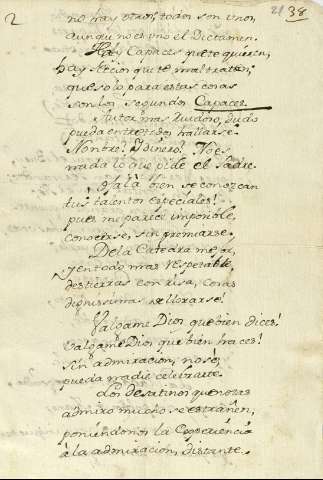 2
21 38
no hay otros, todos son unos,
aunque no es uno el Dictamen.
Hay Capaces que te quieren,
hay Accion que te maltraten,
que solo para estas cosas
son los segundos Capaces.
Autor mas duidoso, dudo
pueda entre todos hallarse.
Nombre? Y dinero? No es
nada lo que pide el Padre.
Ojalà bien se conozcan
tus talentos especiales!
pues me parece imposible,
conocerse, sin premiarse.
De la Catedra mejor,
y en todo mas respetable,
destierras con risa, cosas
dignissimas de llorarse!
Valgame Dios que bien dices!
Valgame Dios que bien haces!
sin admiracion, no sè,
pueda nadie celebrarte.
Los desatinos que notas
admiro mucho se estrañen,
poniendonos la Experiencia
à la admiracion, distante.